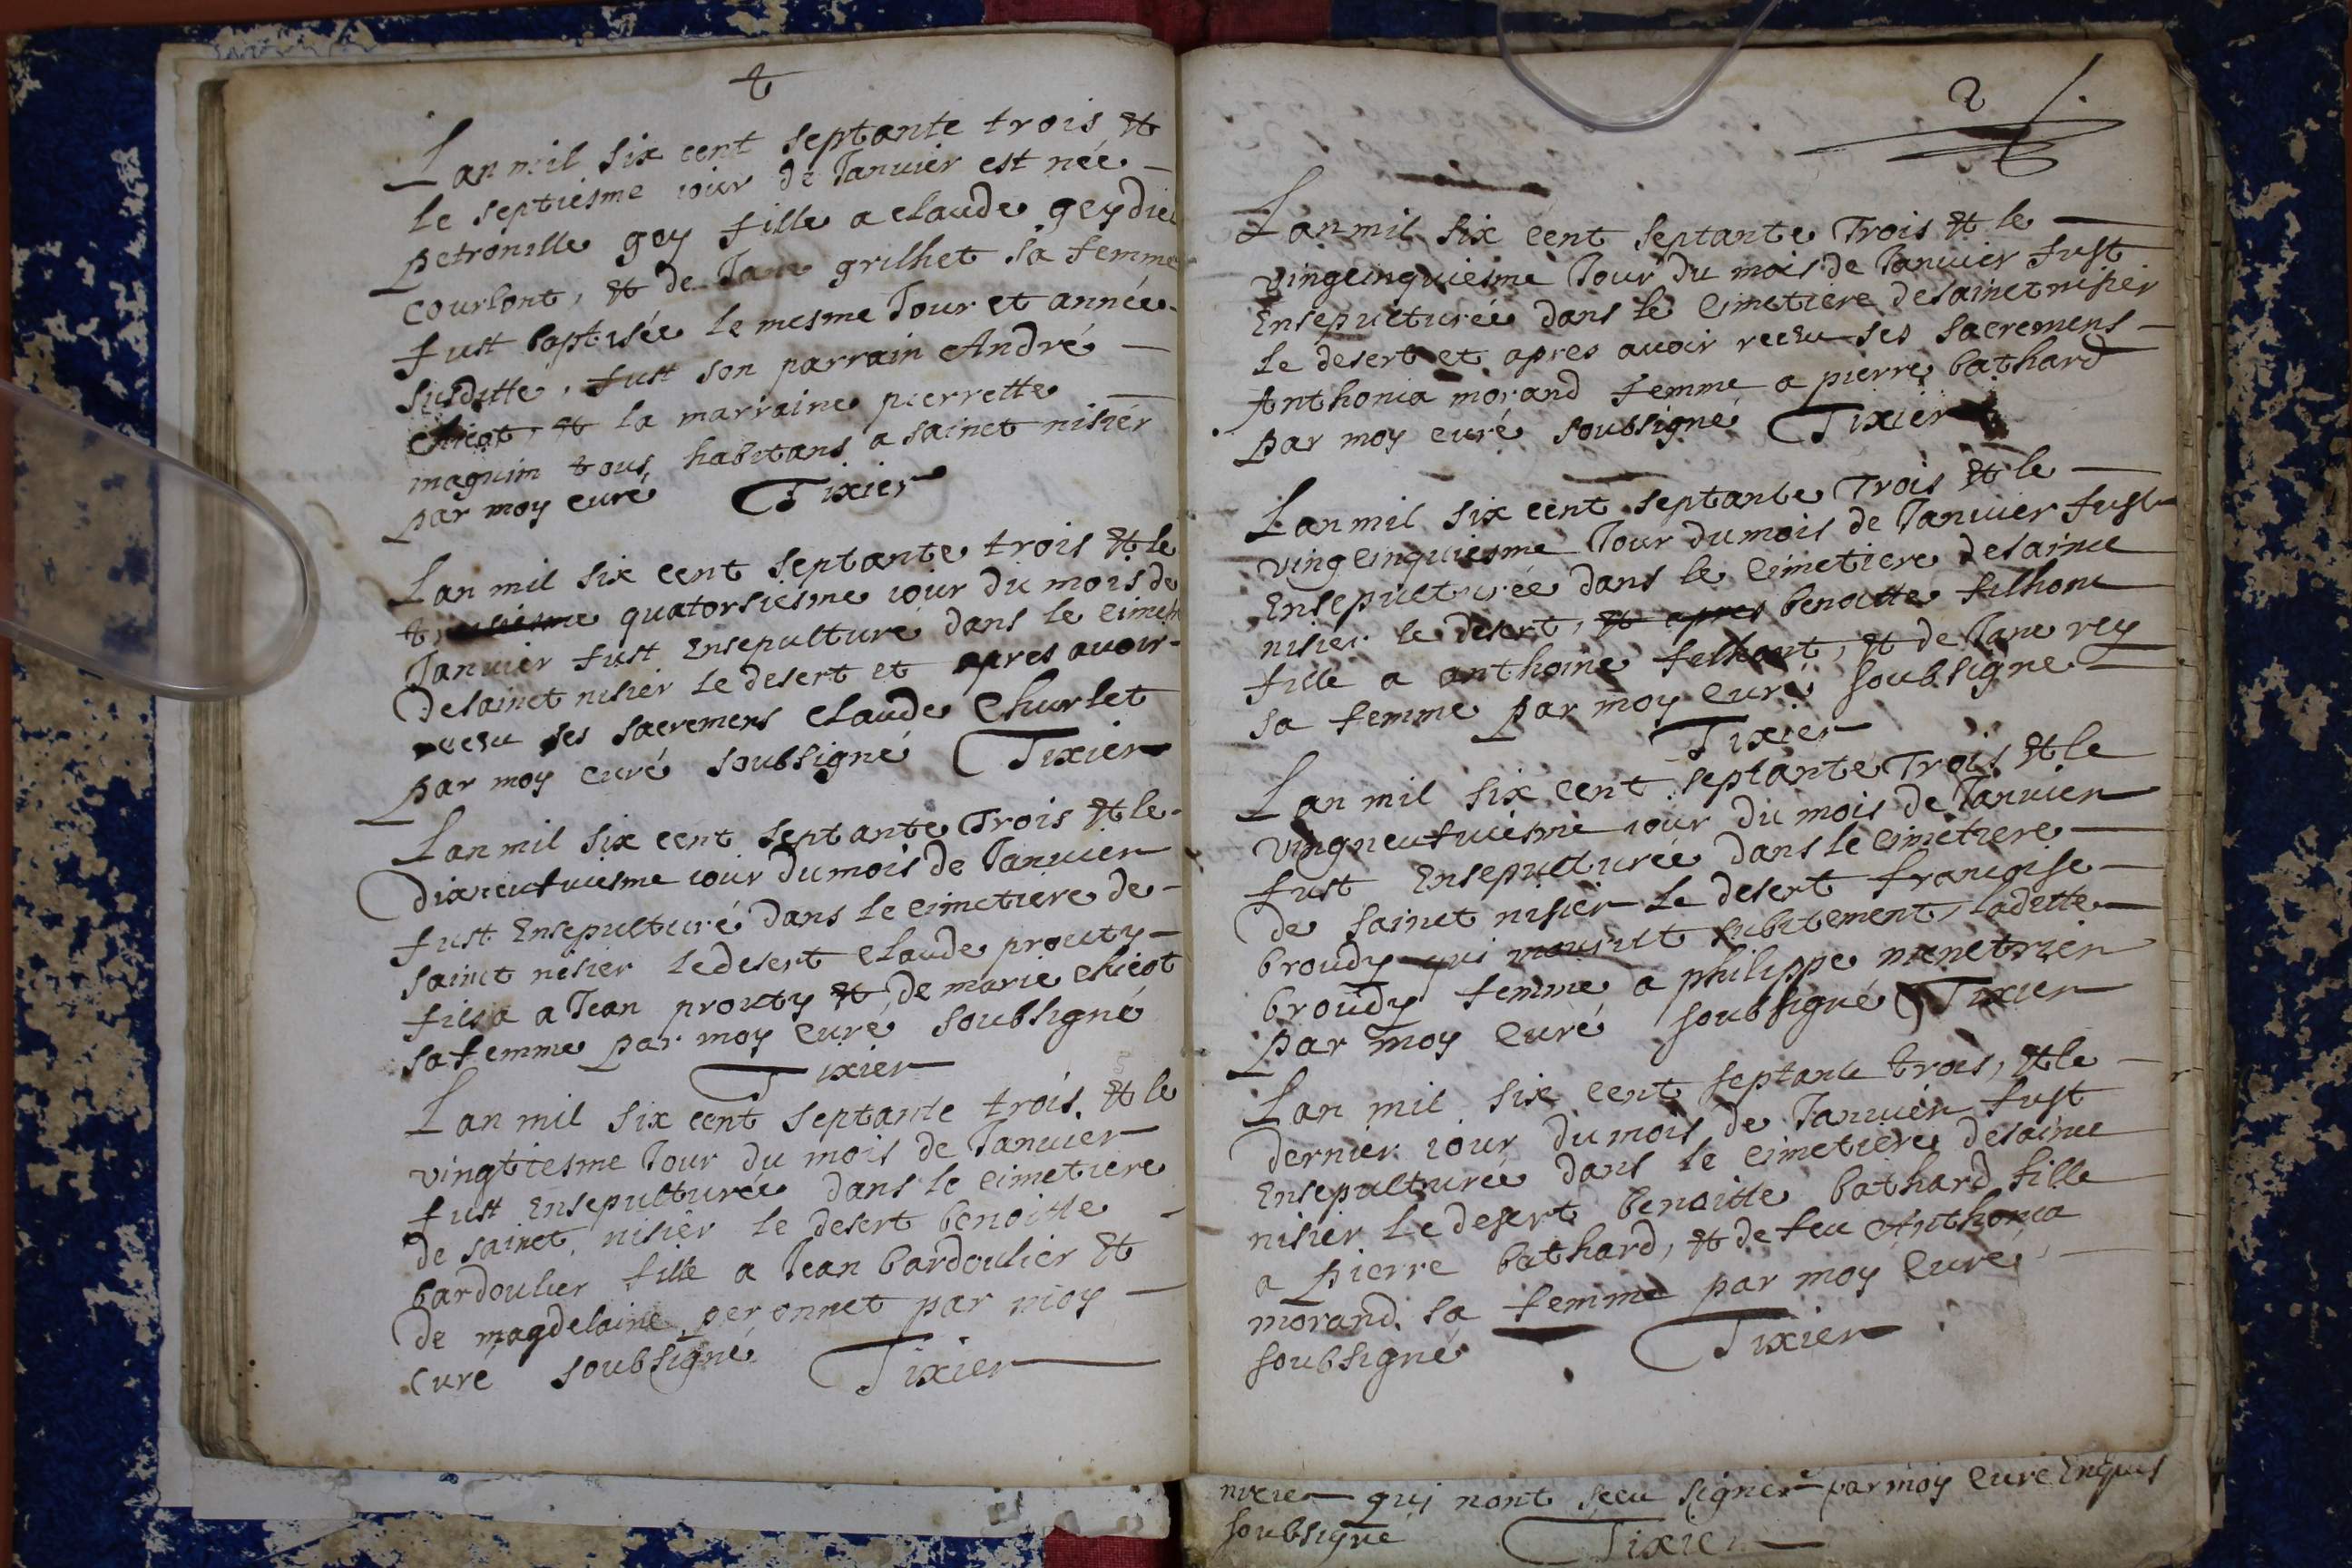 Lan mil six cent septante trois et
le septiesme iour de Ianuier est née
petronille gey fille a claude gey dict
courlont, et de Iane grilhet sa femme
fust baptisée le mesme Iour et année
susditte, fust son parrain André
chicot, et la marraine pierrette
maguim tous habitans a sainct nisier
par moy curé Tixier
Lan mil six cent septante trois et le
quatorsiesme iour du mois de
Ianuier fust Ensepulturé dans le cimet
de sainct nisier le desert et apres auoir
receu ses sacremens claude Churlet
par moy curé soubsigné Tixier
Lan mil six cent septante Trois et le
dixneufuiesme iour du mois de Ianuier
fust Ensepulturé dans le cimetiere de
sainct nisier le desert claude prouty
fils a a Iean prouty et de marie chicot
sa femme par moy curé soubsigné
Tixier
Lan mil six cent septante trois et le
vingtiesme Iour du mois de Ianuier
fust Ensepulturée dans le cimetiere
de sainct nisier le desert benoitte
bardoulier fille a Iean bardoulier et
de magdelaine peronnet par moy
curé soubsigné Tixier
2
Lan mil six cent septante Trois et le
vingcinquiesme Iour du mois de Ianuier fust
Ensepulturée dans le cimetiere de sainct nisier
le desert et apres auoir receu ses sacremens
Anthonia morand femme a pierre bathard
par moy curé soubsigné Tixier
Lan mil six cent septante Trois et le
vingcinquiesme Iour du mois de Ianuier fust
Ensepulturée dans le cimetiere de sainct
nisier le desert, et apres benoitte filhont
fille a anthoine filhont, et de Iane rey
sa femme par moy curé soubsigné
Tixier
Lan mil six cent septante Trois et le
vingneufuiesme iour du mois de Ianuier
fust Ensepulturée dans le cimetiere
de sainct nisier le desert francoise
broudy qui mourut subitement, laditte
broudy femme a philippe menetrier
par moy curé soubsigné Tixier
Lan mil six cent septante trois, et le
dernier iour du mois de Ianuier fust
Ensepulturée dans le cimetiere de sainct
nisier le desert benoitte bathard fille
a pierre bathard, et de feu Anthonia
morand sa femme par moy curé
soubsigné Tixier
qui nont sceu signer par moy curé Enquis
soubsigné Tixier